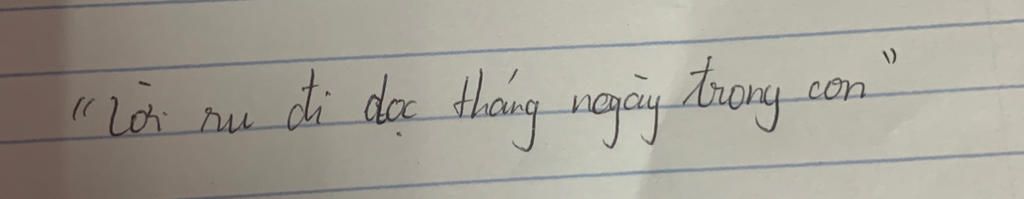 "Lời ru đi dọc tháng ngày trong con"